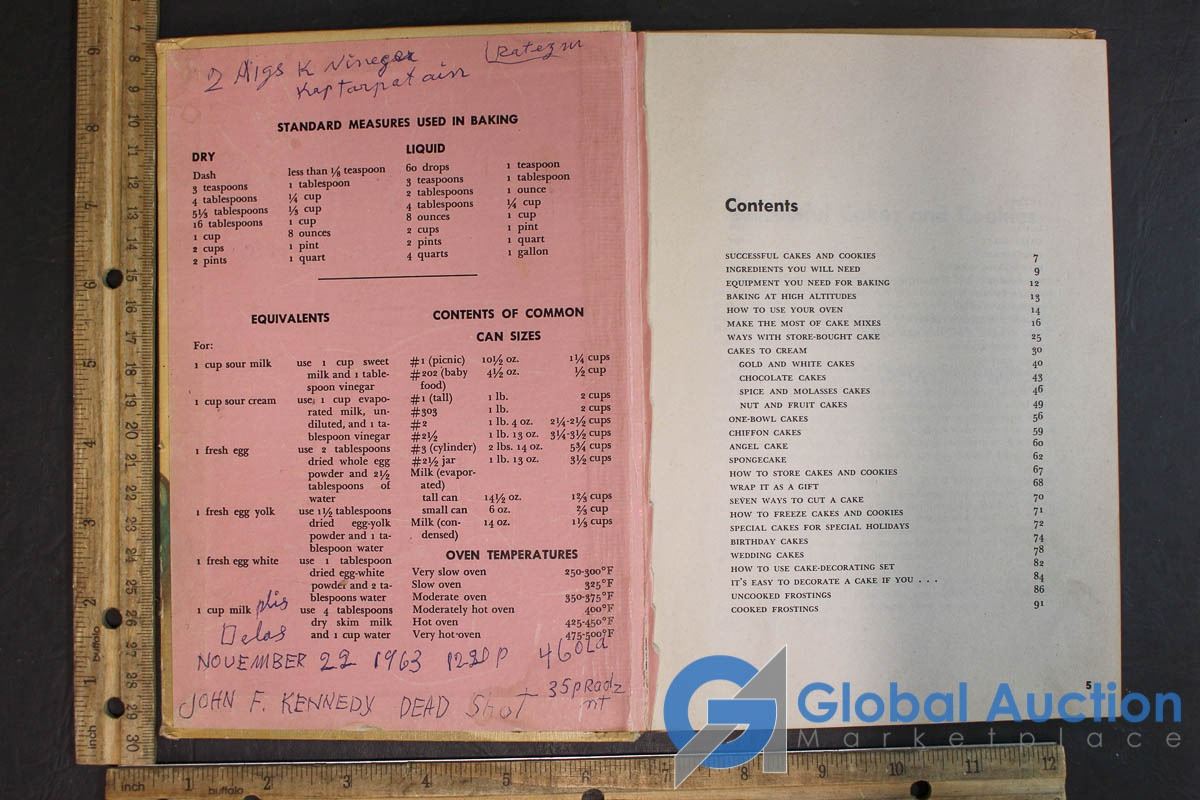 2 Aigs K Vinegar
STANDARD MEASURES USED IN BAKING
DRY
Dash less than ⅛ teaspoon
3 teaspoons 1 tablespoon
4 tablespoons ¼ cup
5⅓ tablespoons ⅓ cup
16 tablespoons 1 cup
1 cup 8 ounces
2 cups 1 pint
2 pints 1 quart
LIQUID
60 drops 1 teaspoon
3 teaspoons 1 tablespoon
2 tablespoons 1 ounce
4 tablespoons ¼ cup
8 ounces 1 cup
2 cups 1 pint
2 pints 1 quart
4 quarts 1 gallon
EQUIVALENTS
For:
1 cup sour milk use 1 cup sweet
milk and 1 table-
spoon vinegar
1 cup sour cream use 1 cup evapo-
rated milk, un-
diluted, and 1 ta-
blespoon vinegar
1 fresh egg use 2 tablespoons
dried whole egg
powder and 2½
tablespoons of
water
1 fresh egg yolk use 1½ tablespoons
dried egg-yolk
powder and 1 ta-
blespoon water
1 fresh egg white use 1 tablespoon
dried egg-white
powder and 2 ta-
blespoons water
1 cup milk use 4 tablespoons
dry skim milk
and 1 cup water
CONTENTS OF COMMON
CAN SIZES
#1 (picnic) 10½ oz. 1¼ cups
#202 (baby 4½ oz. ½ cup
food)
#1 (tall) 1 lb. 2 cups
#303 1 lb. 2 cups
#2 1 lb. 4 oz. 2¼-2½ cups
#2½ 1 lb. 13 oz. 3¼-3½ cups
#3 (cylinder) 2 lbs. 14 oz. 5¾ cups
#2½ jar 1 lb. 13 oz. 3½ cups
Milk (evapor-
ated)
tall can 14½ oz. 1⅔ cups
small can 6 oz. ⅔ cup
Milk (con- 14 oz. 1⅓ cups
densed)
OVEN TEMPERATURES
Very slow oven 250-300°F
Slow oven 325°F
Moderate oven 350-375°F
Moderately hot oven 400°F
Hot oven 425-450°F
Very hot oven 475-500°F
NOVEMBER 22 1963
JOHN F. KENNEDY DEAD SHOT
Contents
SUCCESSFUL CAKES AND COOKIES 7
INGREDIENTS YOU WILL NEED 9
EQUIPMENT YOU NEED FOR BAKING 12
BAKING AT HIGH ALTITUDES 13
HOW TO USE YOUR OVEN 14
MAKE THE MOST OF CAKE MIXES 16
WAYS WITH STORE-BOUGHT CAKE 25
CAKES TO CREAM 30
GOLD AND WHITE CAKES 40
CHOCOLATE CAKES 43
SPICE AND MOLASSES CAKES 46
NUT AND FRUIT CAKES 49
ONE-BOWL CAKES 56
CHIFFON CAKES 59
ANGEL CAKE 60
SPONGECAKE 62
HOW TO STORE CAKES AND COOKIES 67
WRAP IT AS A GIFT 68
SEVEN WAYS TO CUT A CAKE 70
HOW TO FREEZE CAKES AND COOKIES 71
SPECIAL CAKES FOR SPECIAL HOLIDAYS 72
BIRTHDAY CAKES 74
WEDDING CAKES 78
HOW TO USE CAKE-DECORATING SET 82
IT'S EASY TO DECORATE A CAKE IF YOU . . . 84
UNCOOKED FROSTINGS 86
COOKED FROSTINGS 91
5
Global Auction
Marketplace
inch 1 buffalo 2 3 4 5 6 7 8 9 10 11 12